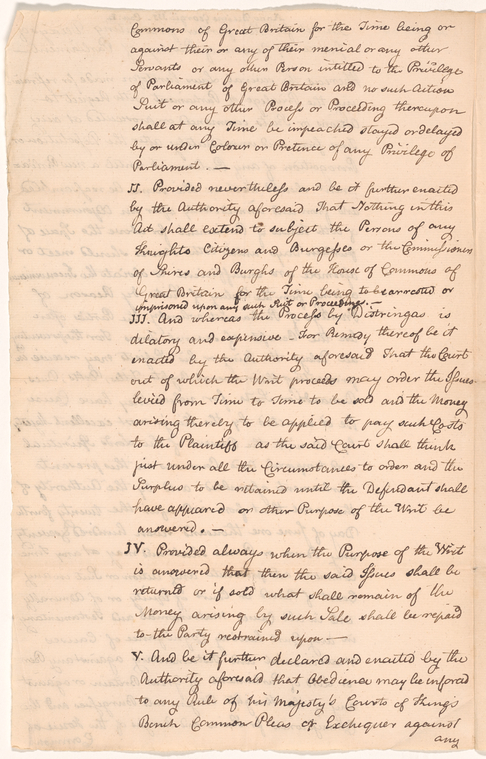 Commons of Great Britain for the Time being or
against their or any of their menial or any other
Servants or any other Person intitled to the Privilege
of Parliament of Great Britain and no such Action
Suit or any other Process or Proceeding thereupon
shall at any Time be impeached stayed or delayed
by or under Colour or Pretence of any Privilege of
Parliament. —
II. Provided nevertheless and be it further enacted
by the Authority aforesaid That Nothing in this
Act shall extend to subject the Persons of any
Knights Citizens and Burgesses or the Commissioners
of Shires and Burghs of the House of Commons of
Great Britain for the Time being to be arrested or
imprisoned upon any such Suit or Proceeding. —
III. And whereas the Process by Distringas is
dilatory and expensive - For Remedy thereof be it
enacted by the Authority aforesaid That the Court
out of which the Writ proceeds may order the Issues
levied from Time to Time to be sold and the Money
arising thereby to be applied to pay such Costs
to the Plaintiff as the said Court shall think
just under all the Circumstances to order and the
Surplus to be retained until the Defendant shall
have appeared or other Purpose of the Writ be
answered. —
IV. Provided always when the Purpose of the Writ
is answered that then the said Issues shall be
returned or if sold what shall remain of the
Money arising by such Sale shall be repaid
to the Party restrained upon —
V. And be it further declared and enacted by the
Authority aforesaid that Obedience may be inforced
to any Rule of his Majesty's Courts of King's
Bench Common Pleas or Exchequer against
any